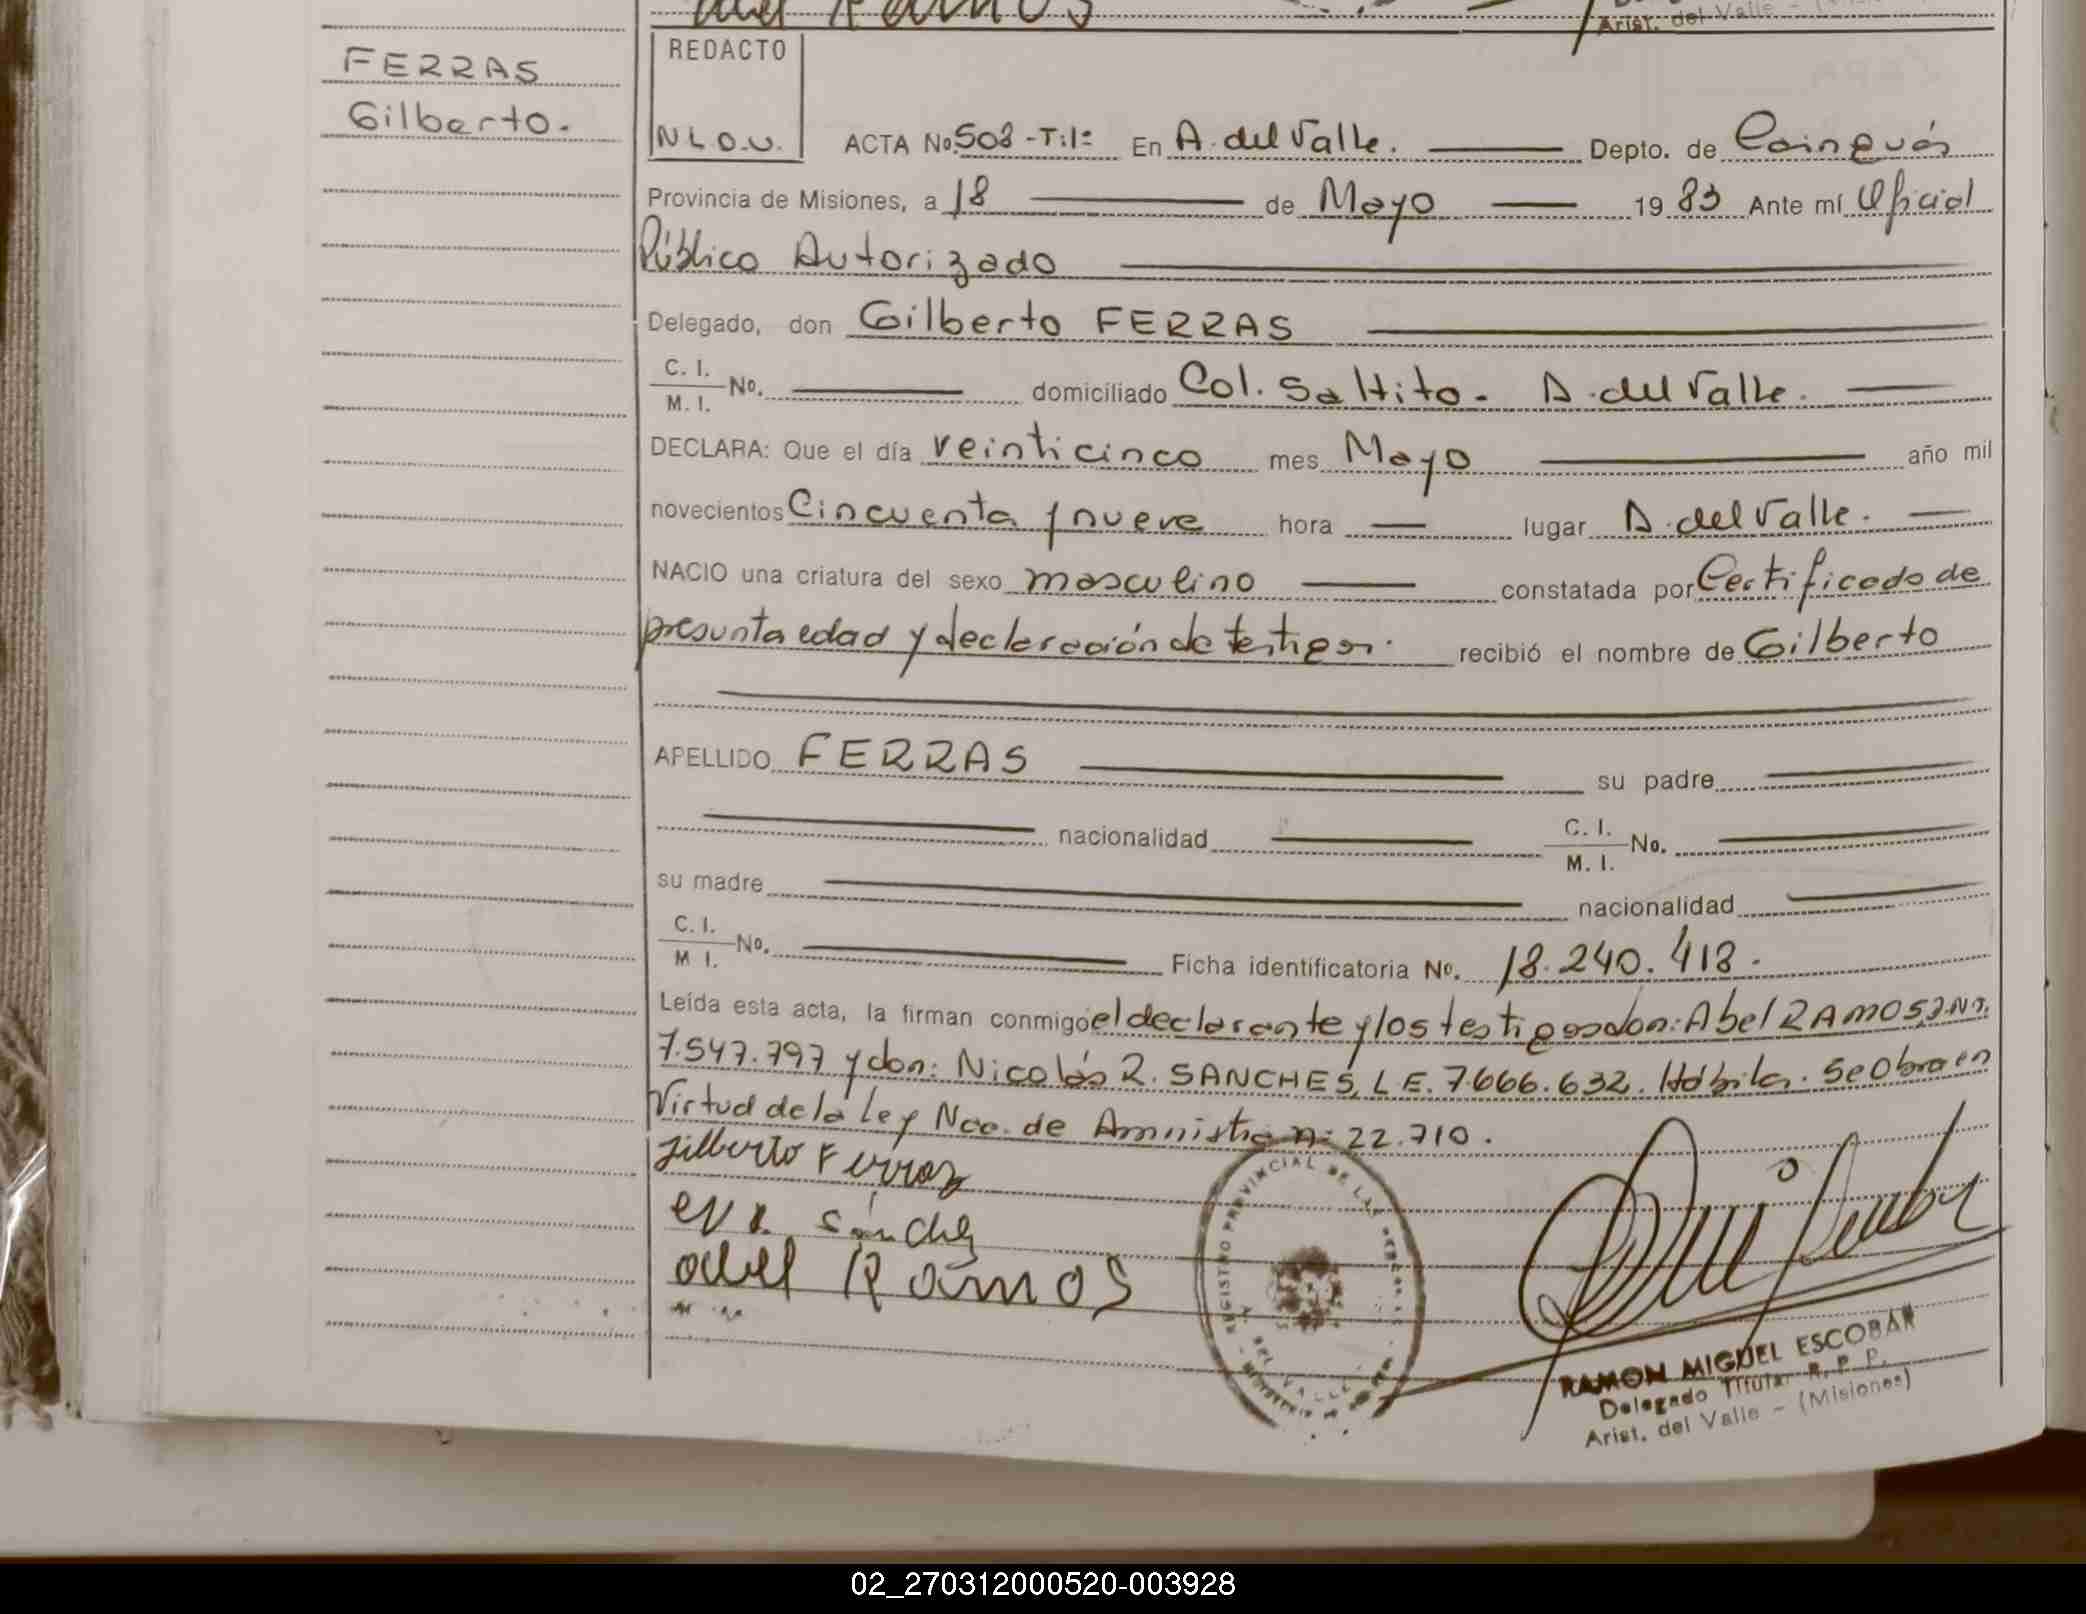 Arist. del Valle - (
REDACTO
FERRAS
Gilberto.
N L O.U.
ACTA No. 508 -T:1º En A. del Valle. Depto. de Cainguás
Provincia de Misiones, a 18 de Mayo 19 83 Ante mí Oficial
Público Autorizado
Delegado, don Gilberto FERRAS
C. I.
M. I. No. domiciliado Col. Saltito - A. del Valle.
DECLARA: Que el día veinticinco mes Mayo año mil
novecientos Cincuenta y nueve hora lugar A. del Valle.
NACIO una criatura del sexo masculino constatada por Certificado de
presunta edad y declaración de testigos. recibió el nombre de Gilberto
APELLIDO FERRAS su padre
nacionalidad C. I.
M. I. No.
su madre nacionalidad
C. I.
M I. No. Ficha identificatoria No. 18.240.418.
Leída esta acta, la firman conmigo el declarante y los testigos don: Abel RAMOS,
7.547.797 y don: Nicolás R. SANCHES, L E. 7.666.632. Hábiles. Se Obra en
Virtud de la Ley Nac. de Amnistia nº 22.710.
Gilberto Ferraz
sánchez
abel Ramos
REGISTRO PROVINCIAL DE LAS PERSONAS
DEL VALLE
RAMON MIGUEL ESCOBAR
Delegado Titular R. P. P.
Arist. del Valle - (Misiones)
02_270312000520-003928